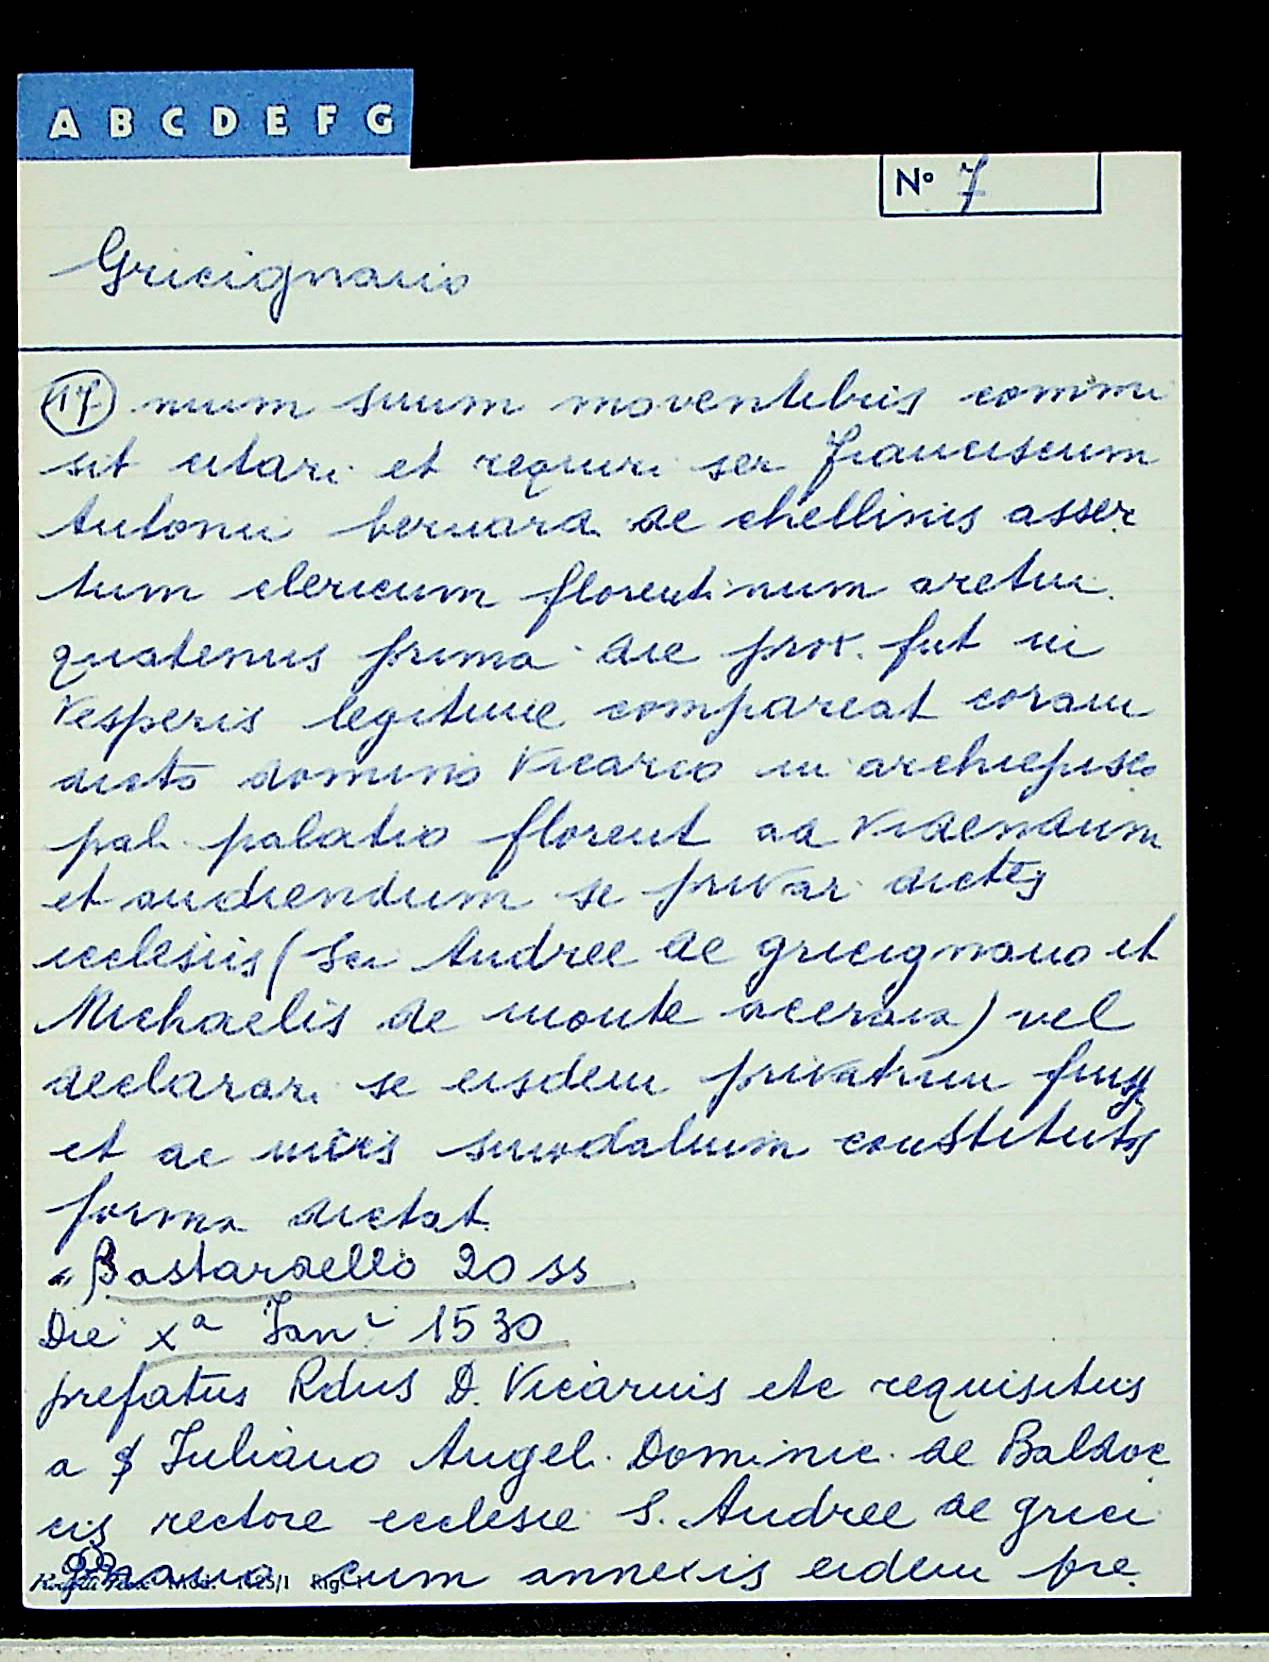 A B C D E F G
N° 7
Gricignano
17 num suum moventibus commi
sit citari et requiri ser franciscum
Antonii bernardi de chellinis asser
tum clericum florentinum
quatenus prima die prox. fut in
Vesperis legitime compareat coram
dicto domino Vicario in archiepisco
pal. palatio florent ad Videndum
et audiendum se privar. dictis
ecclesiis (Sci Andree de gricignano et
Michaelis de monte aceraia) vel
declarari se eisdem privatum
et ac sinodalium
forma dictat.
" Bastardello 20 ss
Die xa Jani 1530
prefatus Rdus D. Vicarius etc requisitus
a Juliano Angel. Dominic. de Baldoc
cis rectore ecclesie S. Andree de grici
gnano cum annexis eidem pre.